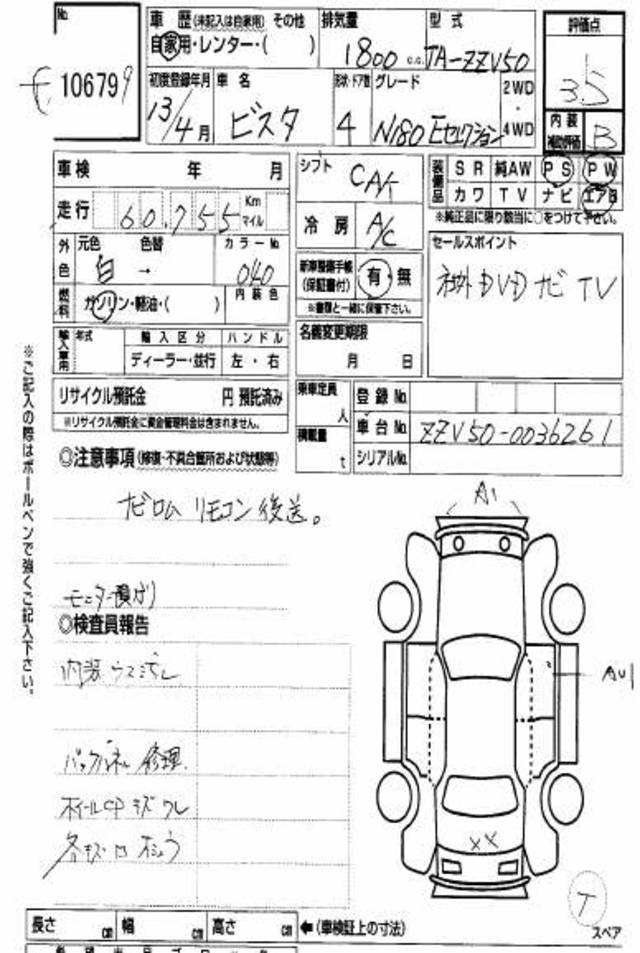 No.
106799
車歴 (未記入は自家用) その他
自家用・レンター・( )
排気量
1800 c.c.
型式
TA-ZZV50
評価点
3.5
初度登録年月
13/4月
車名
ビスタ
形状・ドア数
4
グレード
N180 Eセレクション
2WD
・
4WD
内装
補助評価
B
車検 年 月
シフト
CAT
装備品
SR 純AW PS PW
カワ TV ナビ エアB
※純正品に限り該当に○をつけて下さい。
走行 60,755 Km マイル
冷房
A/C
セールスポイント
社外DVDナビ TV
外色
元色 色替
白 →
カラーNo.
040
新車整備手帳
(保証書付)
有・無
※書類と一緒に保管下さい。
燃料
ガソリン・軽油・( )
内装色
名義変更期限
月 日
輸入車用
年式
輸入区分
ハンドル
ディーラー・並行
左・右
リサイクル預託金 円 預託済み
※リサイクル預託金に資金管理料金は含まれません。
乗車定員
人
積載量
t
登録No.
車台No. ZZV50-0036261
シリアルNo.
◎注意事項 (修復・不具合箇所および状態等)
ナビロム リモコン後送。
モニター預かり
◎検査員報告
内装ウスヨゴレ
バックパネル修理
ホイールCPキズワレ
各キズ
A1
AU1
XX
T
スペア
※ご記入の際はボールペンで強くご記入下さい。
長さ cm 幅 cm 高さ cm ←(車検証上の寸法)